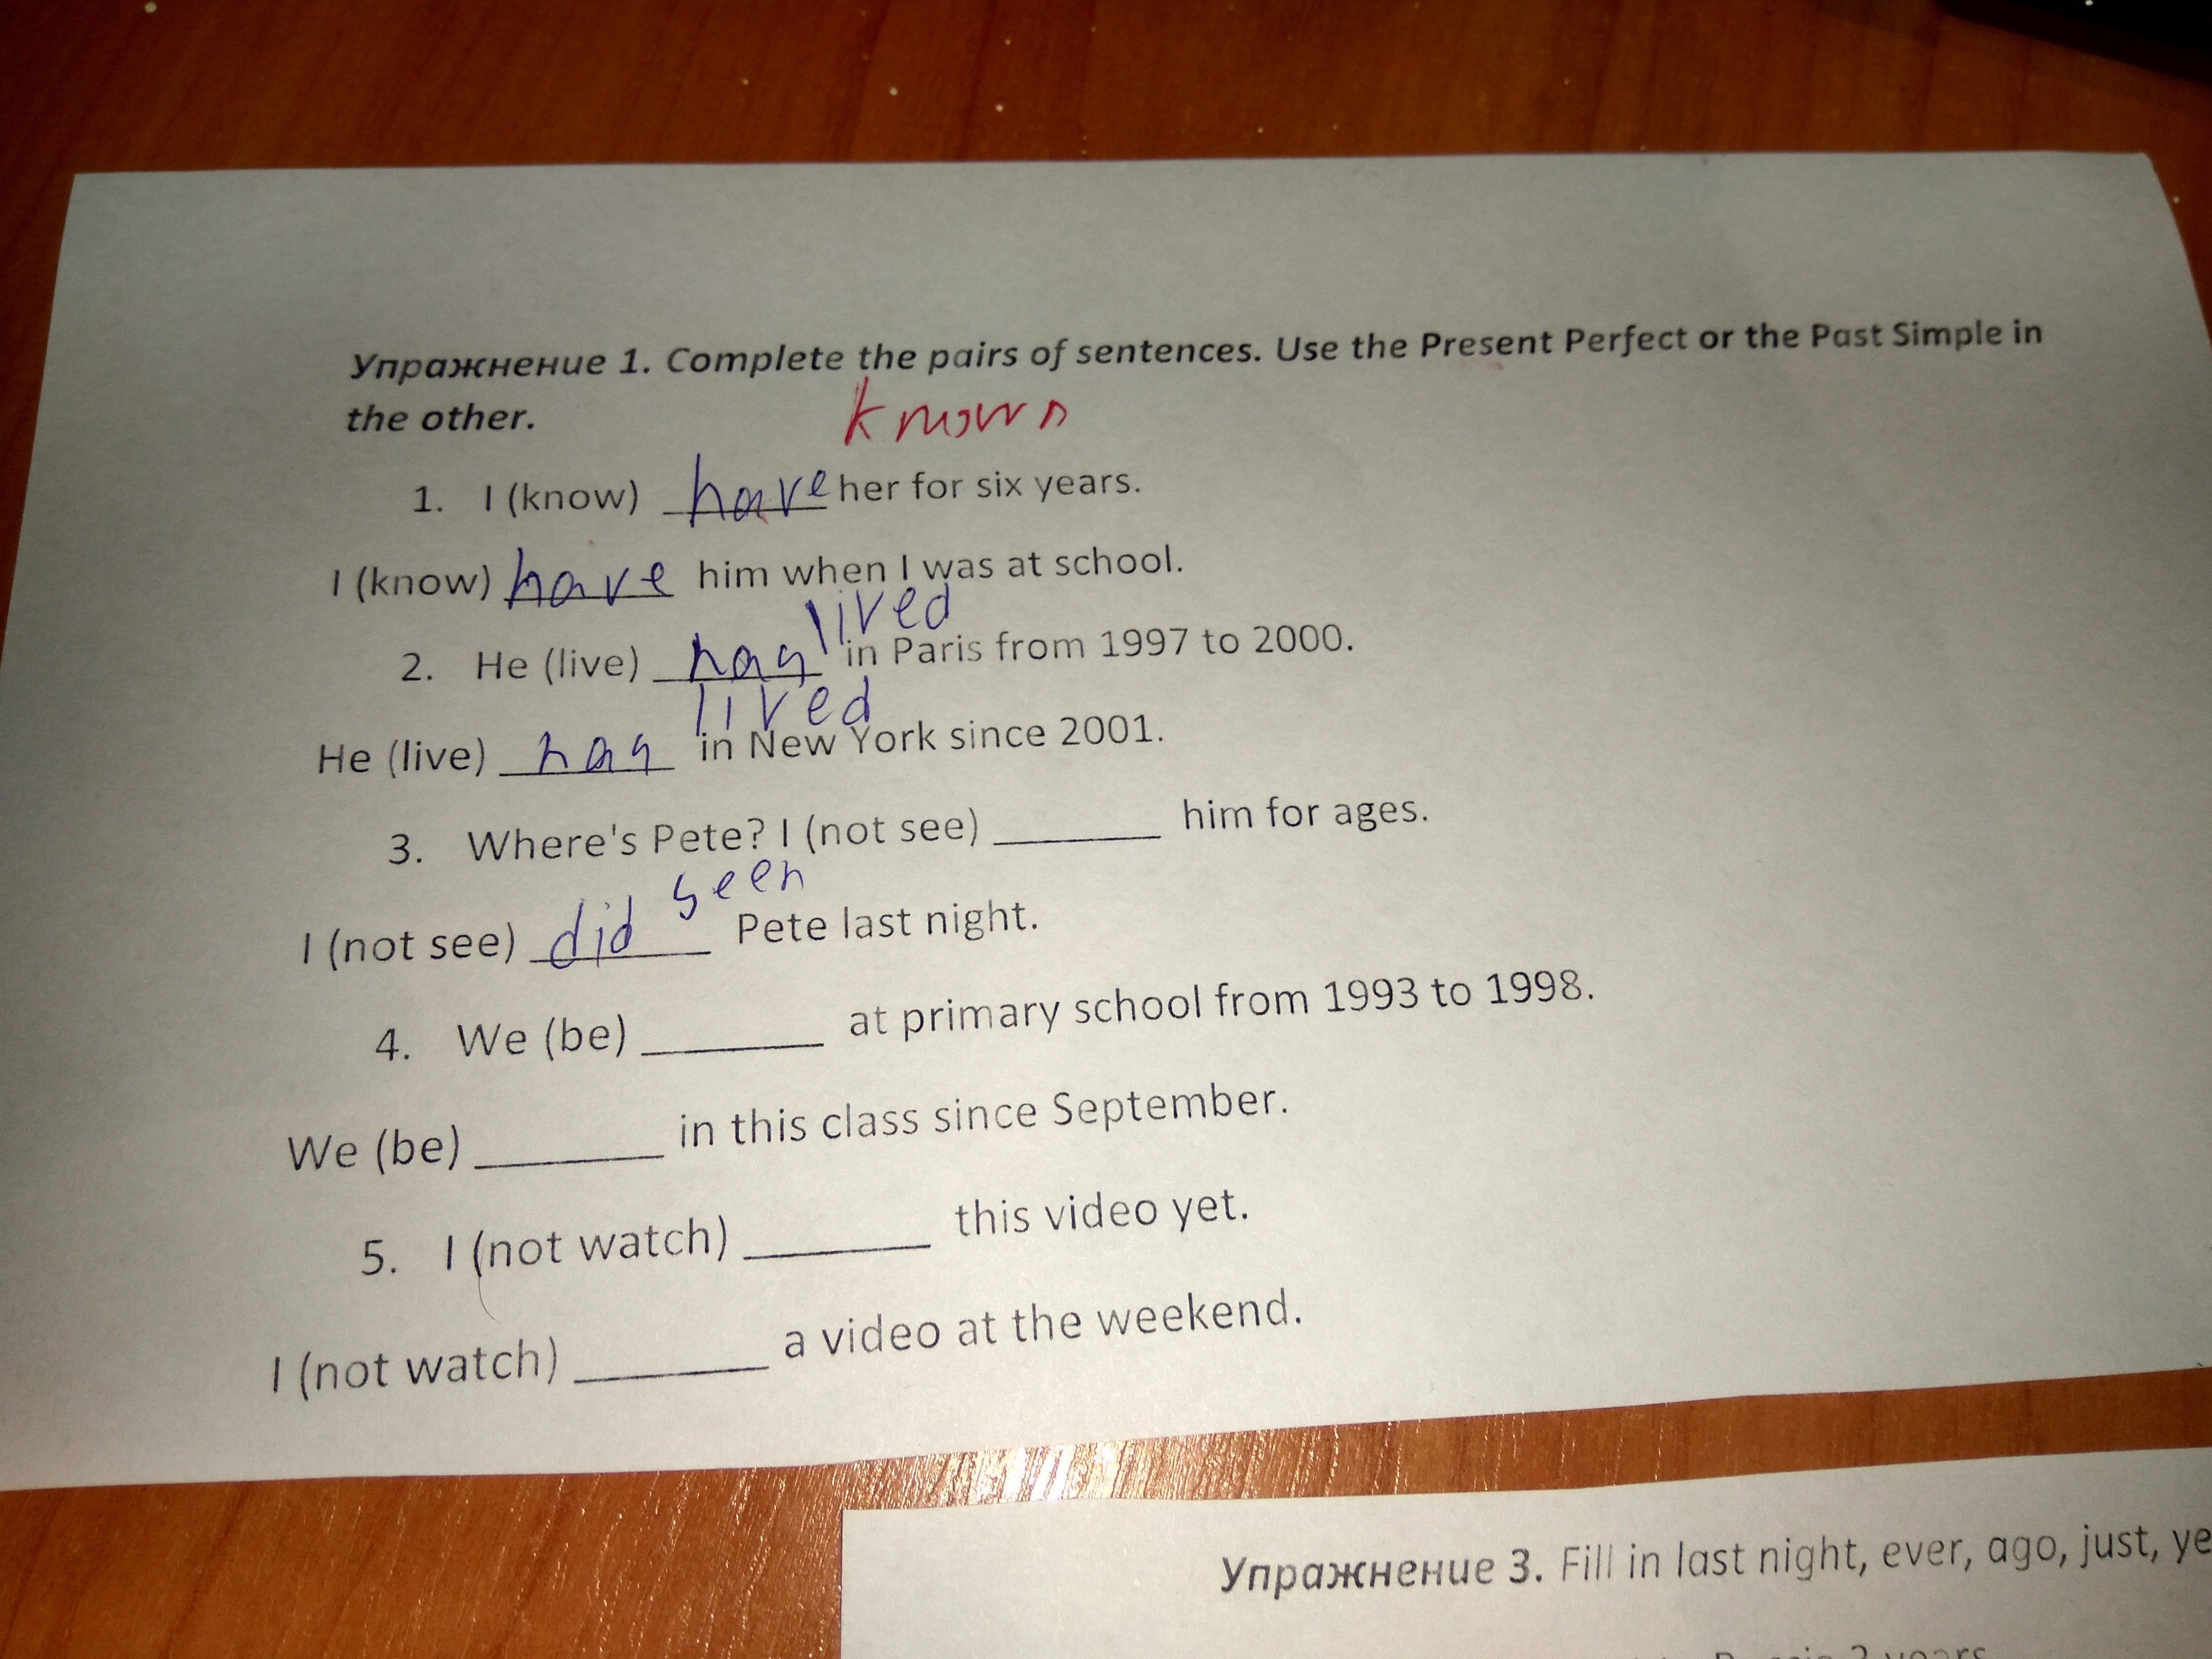 Упражнение 1. Complete the pairs of sentences. Use the Present Perfect or the Past Simple in
the other.
known
1. I (know) have her for six years.
I (know) have him when I was at school.
lived
2. He (live) has in Paris from 1997 to 2000.
lived
He (live) has in New York since 2001.
3. Where's Pete? I (not see) ______ him for ages.
seen
I (not see) did Pete last night.
4. We (be) ______ at primary school from 1993 to 1998.
We (be) ______ in this class since September.
5. I (not watch) ______ this video yet.
I (not watch) ______ a video at the weekend.
Упражнение 3. Fill in last night, ever, ago, just, ye
2 years